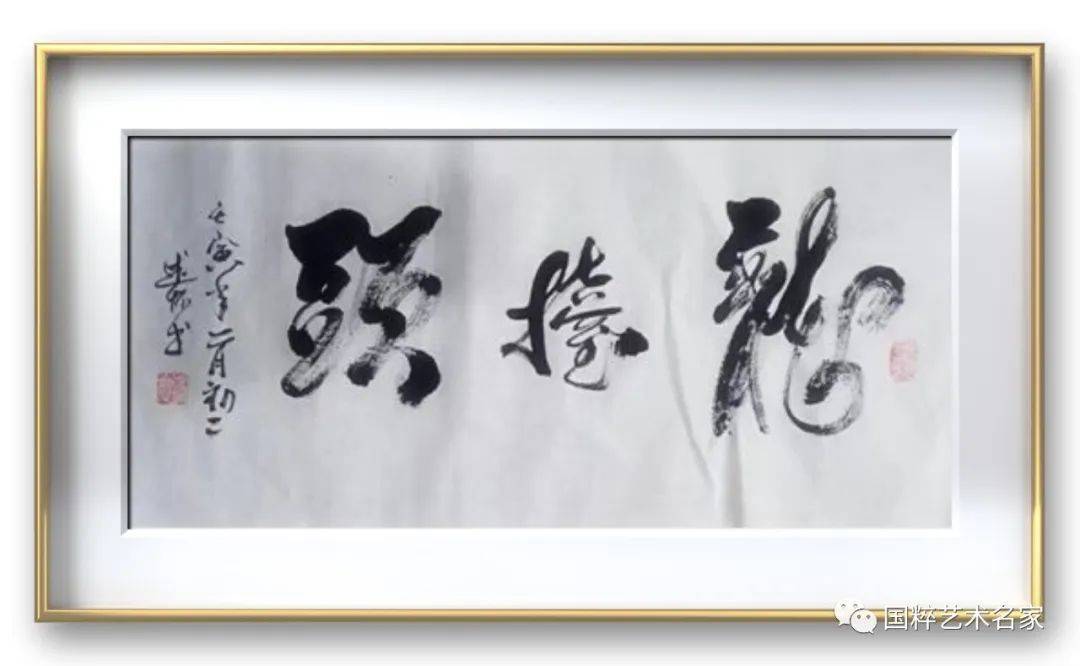 龍擡頭
壬寅年二月初二
书
国粹艺术名家